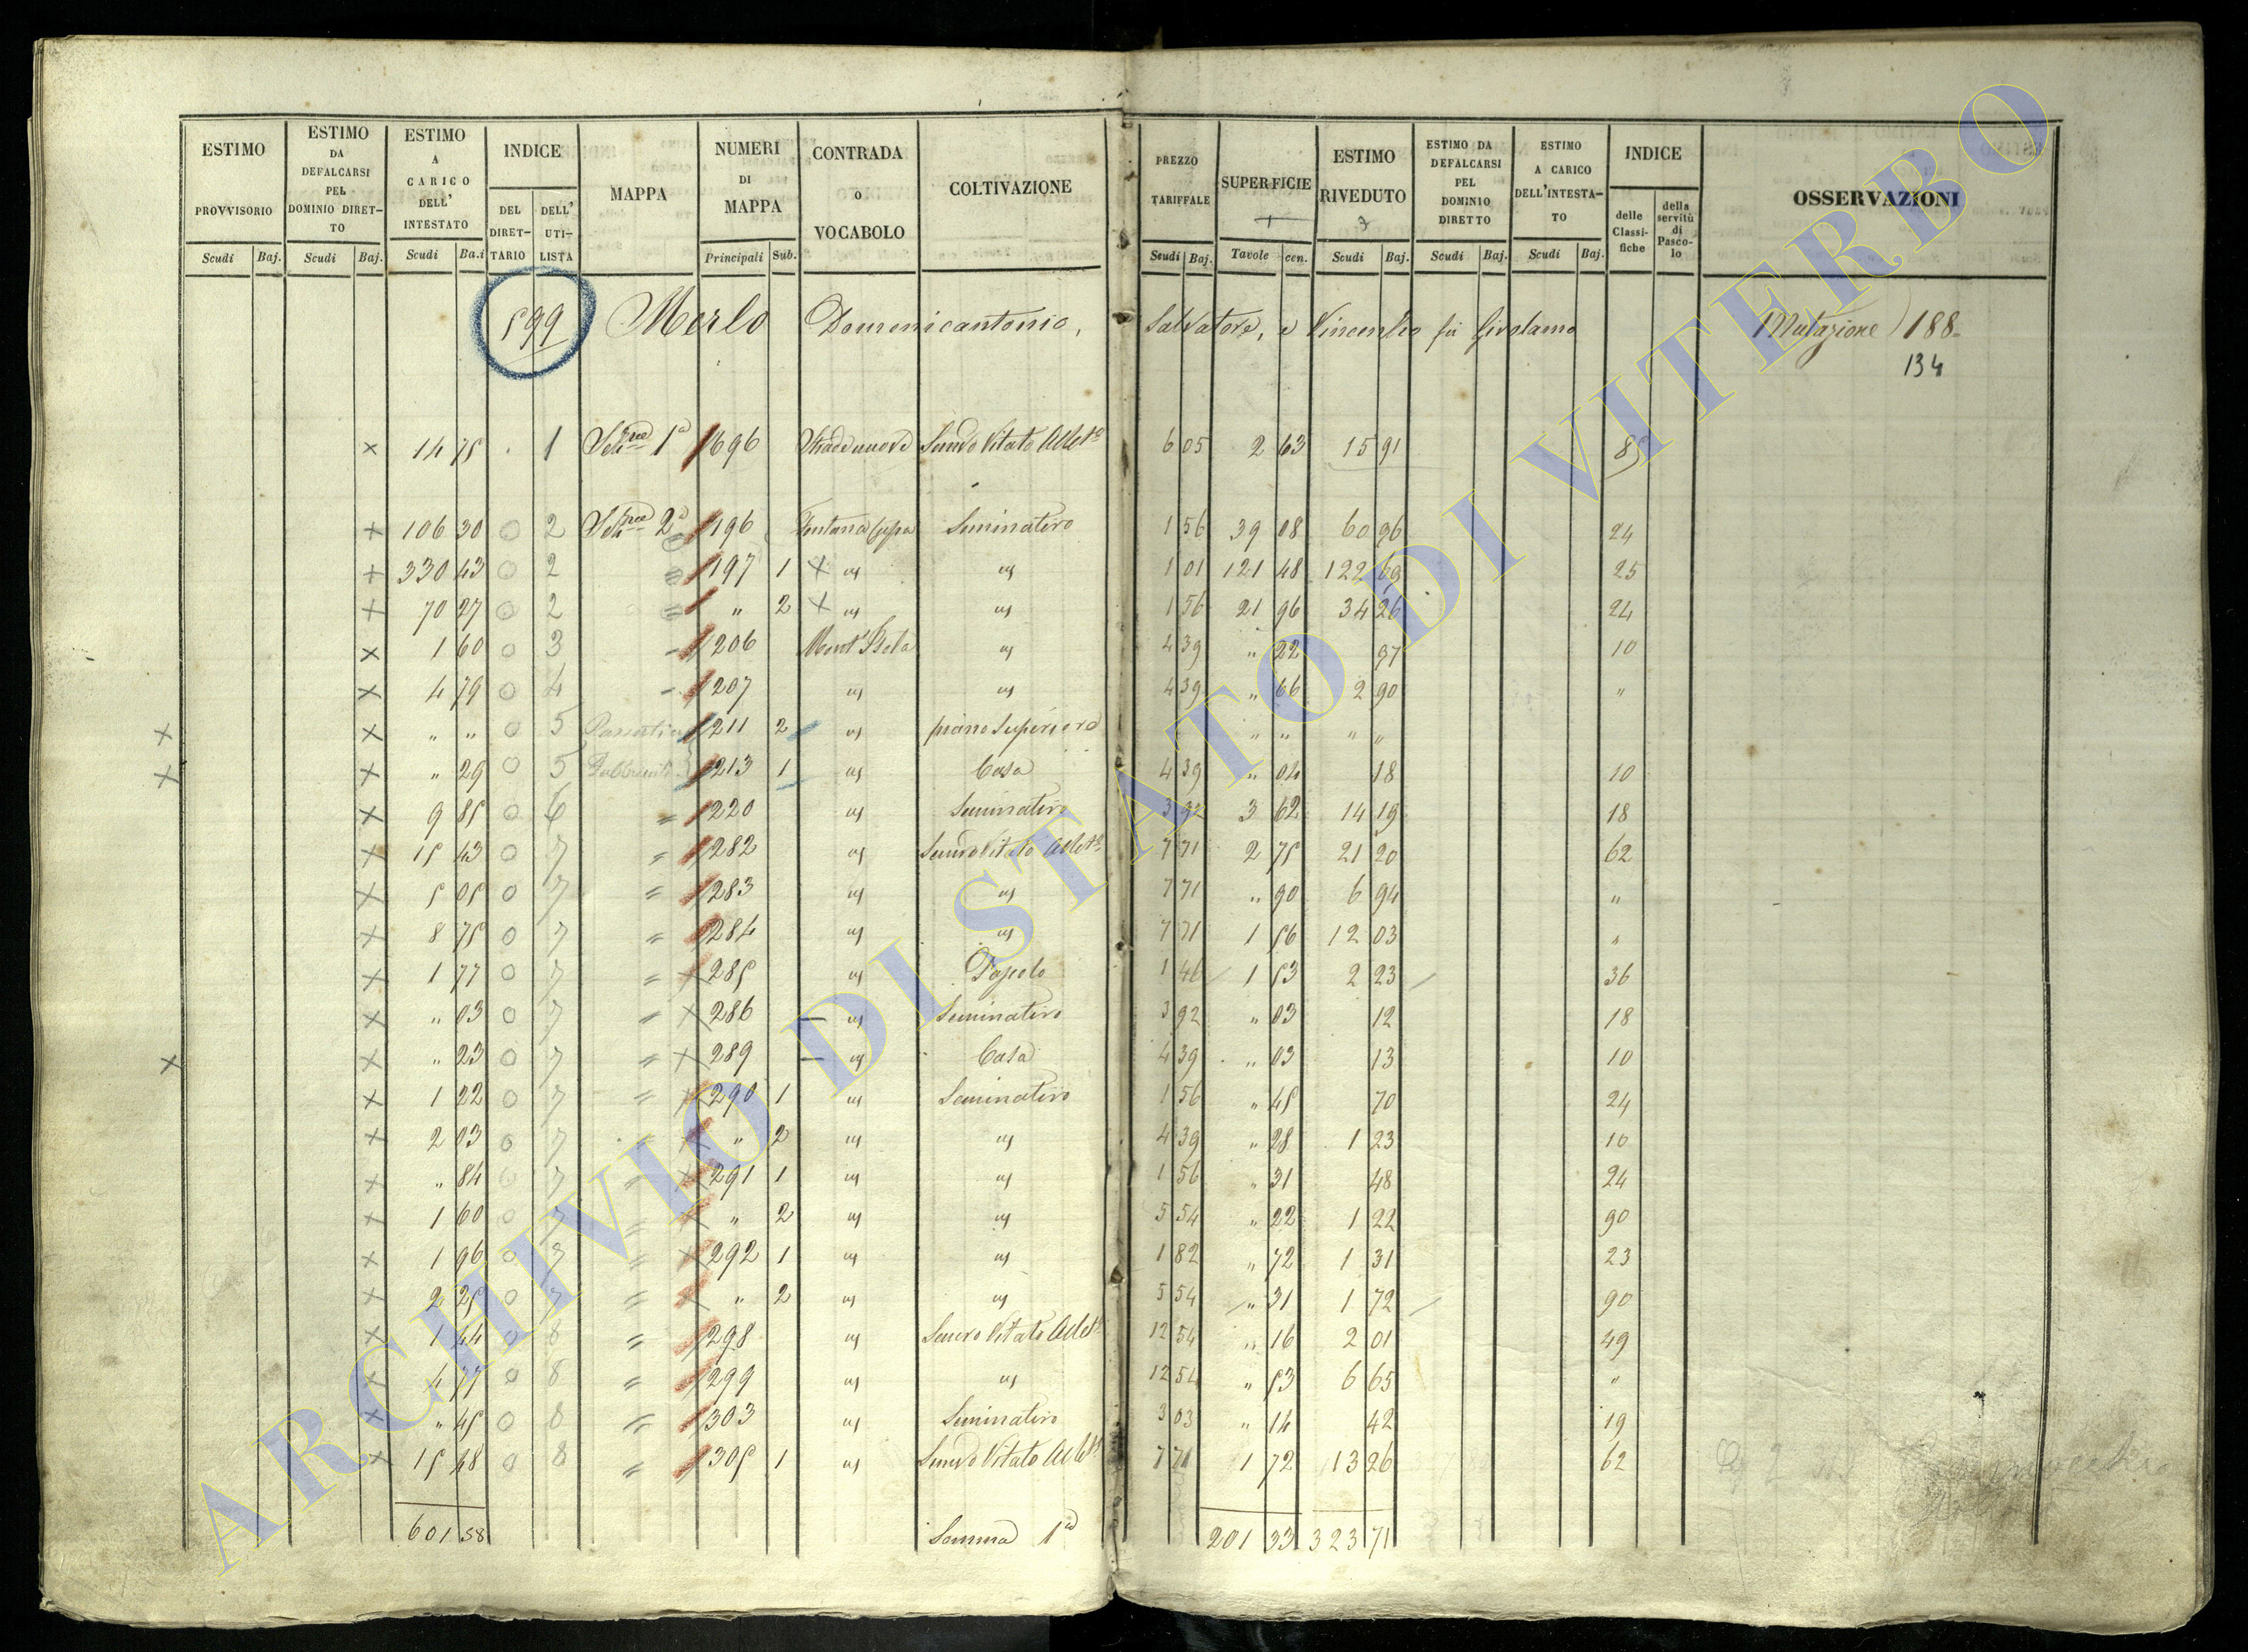 ESTIMO PROVVISORIO Scudi Baj.
ESTIMO DA DEFALCARSI PEL DOMINIO DIRETTO Scudi Baj.
ESTIMO A CARICO DELL' INTESTATO Scudi Ba.i
INDICE DEL DIRETTARIO DELL' UTILISTA
MAPPA
NUMERI DI MAPPA Principali Sub.
CONTRADA o VOCABOLO
COLTIVAZIONE
PREZZO TARIFFALE Scudi Baj.
SUPERFICIE Tavole cen.
ESTIMO RIVEDUTO Scudi Baj.
ESTIMO DA DEFALCARSI PEL DOMINIO DIRETTO Scudi Baj.
ESTIMO A CARICO DELL'INTESTATO Scudi Baj.
INDICE delle Classifiche della servitù di Pascolo
OSSERVAZIONI
599 Merlo Domenicantonio, Salvatore, e Vincenzo fu Girolamo Mutazione 188
134
× 14 75 1 Sez.ne 1a 696 Strade nuove Semvo Vitato Allto 6 05 2 63 15 91 85
+ 106 30 0 2 Sez.ne 2a 196 Fontana Cupa Seminativo 1 56 39 08 60 96 24
+ 330 43 0 2 = 197 1 × " " 1 01 121 48 122 69 25
+ 70 27 0 2 = " 2 × " " 1 56 21 96 34 26 24
× 1 60 0 3 - 206 " 4 39 " 22 97 10
× 4 79 0 4 - 207 " " 4 39 " 66 2 90 "
× × " " 0 5 211 2 " piano Superiore " " " "
× × " 29 0 5 213 1 " Casa 4 39 " 04 18 10
× 9 85 0 6 = 220 " Seminativo 3 92 3 62 14 19 18
× 15 43 0 7 = 282 " Semvo Vitato Allto 7 71 2 75 21 20 62
× 5 05 0 7 = 283 " " 7 71 " 90 6 94 "
× 8 75 0 7 = 284 " " 7 71 1 56 12 03 "
× 1 77 0 7 = × 285 " Pascolo 1 46 1 53 2 23 36
× " 03 0 7 = × 286 " Seminativo 3 92 " 03 12 18
× × " 23 0 7 = × 289 " Casa 4 39 " 03 13 10
× 1 22 0 7 = × 290 1 " Seminativo 1 56 " 45 70 24
× 2 03 0 7 = × " 2 " " 4 39 " 28 1 23 10
× " 84 0 7 = × 291 1 " " 1 56 " 31 48 24
× 1 60 0 7 = × " 2 " " 5 54 " 22 1 22 90
× 1 96 0 7 = × 292 1 " " 1 82 " 72 1 31 23
× 2 25 0 7 = × " 2 " " 5 54 " 31 1 72 90
× 1 44 0 8 = 298 " Semvo Vitato Allto 12 54 " 16 2 01 49
× 4 77 0 8 = 299 " " 12 54 " 53 6 65 "
× " 45 0 8 = 303 " Seminativo 3 03 " 14 42 19
× 15 48 0 8 = 305 1 " Semvo Vitato Allto 7 71 1 72 13 26 62
601 58 Somma 1a 201 33 323 71
ARCHIVIO DI STATO DI VITERBO